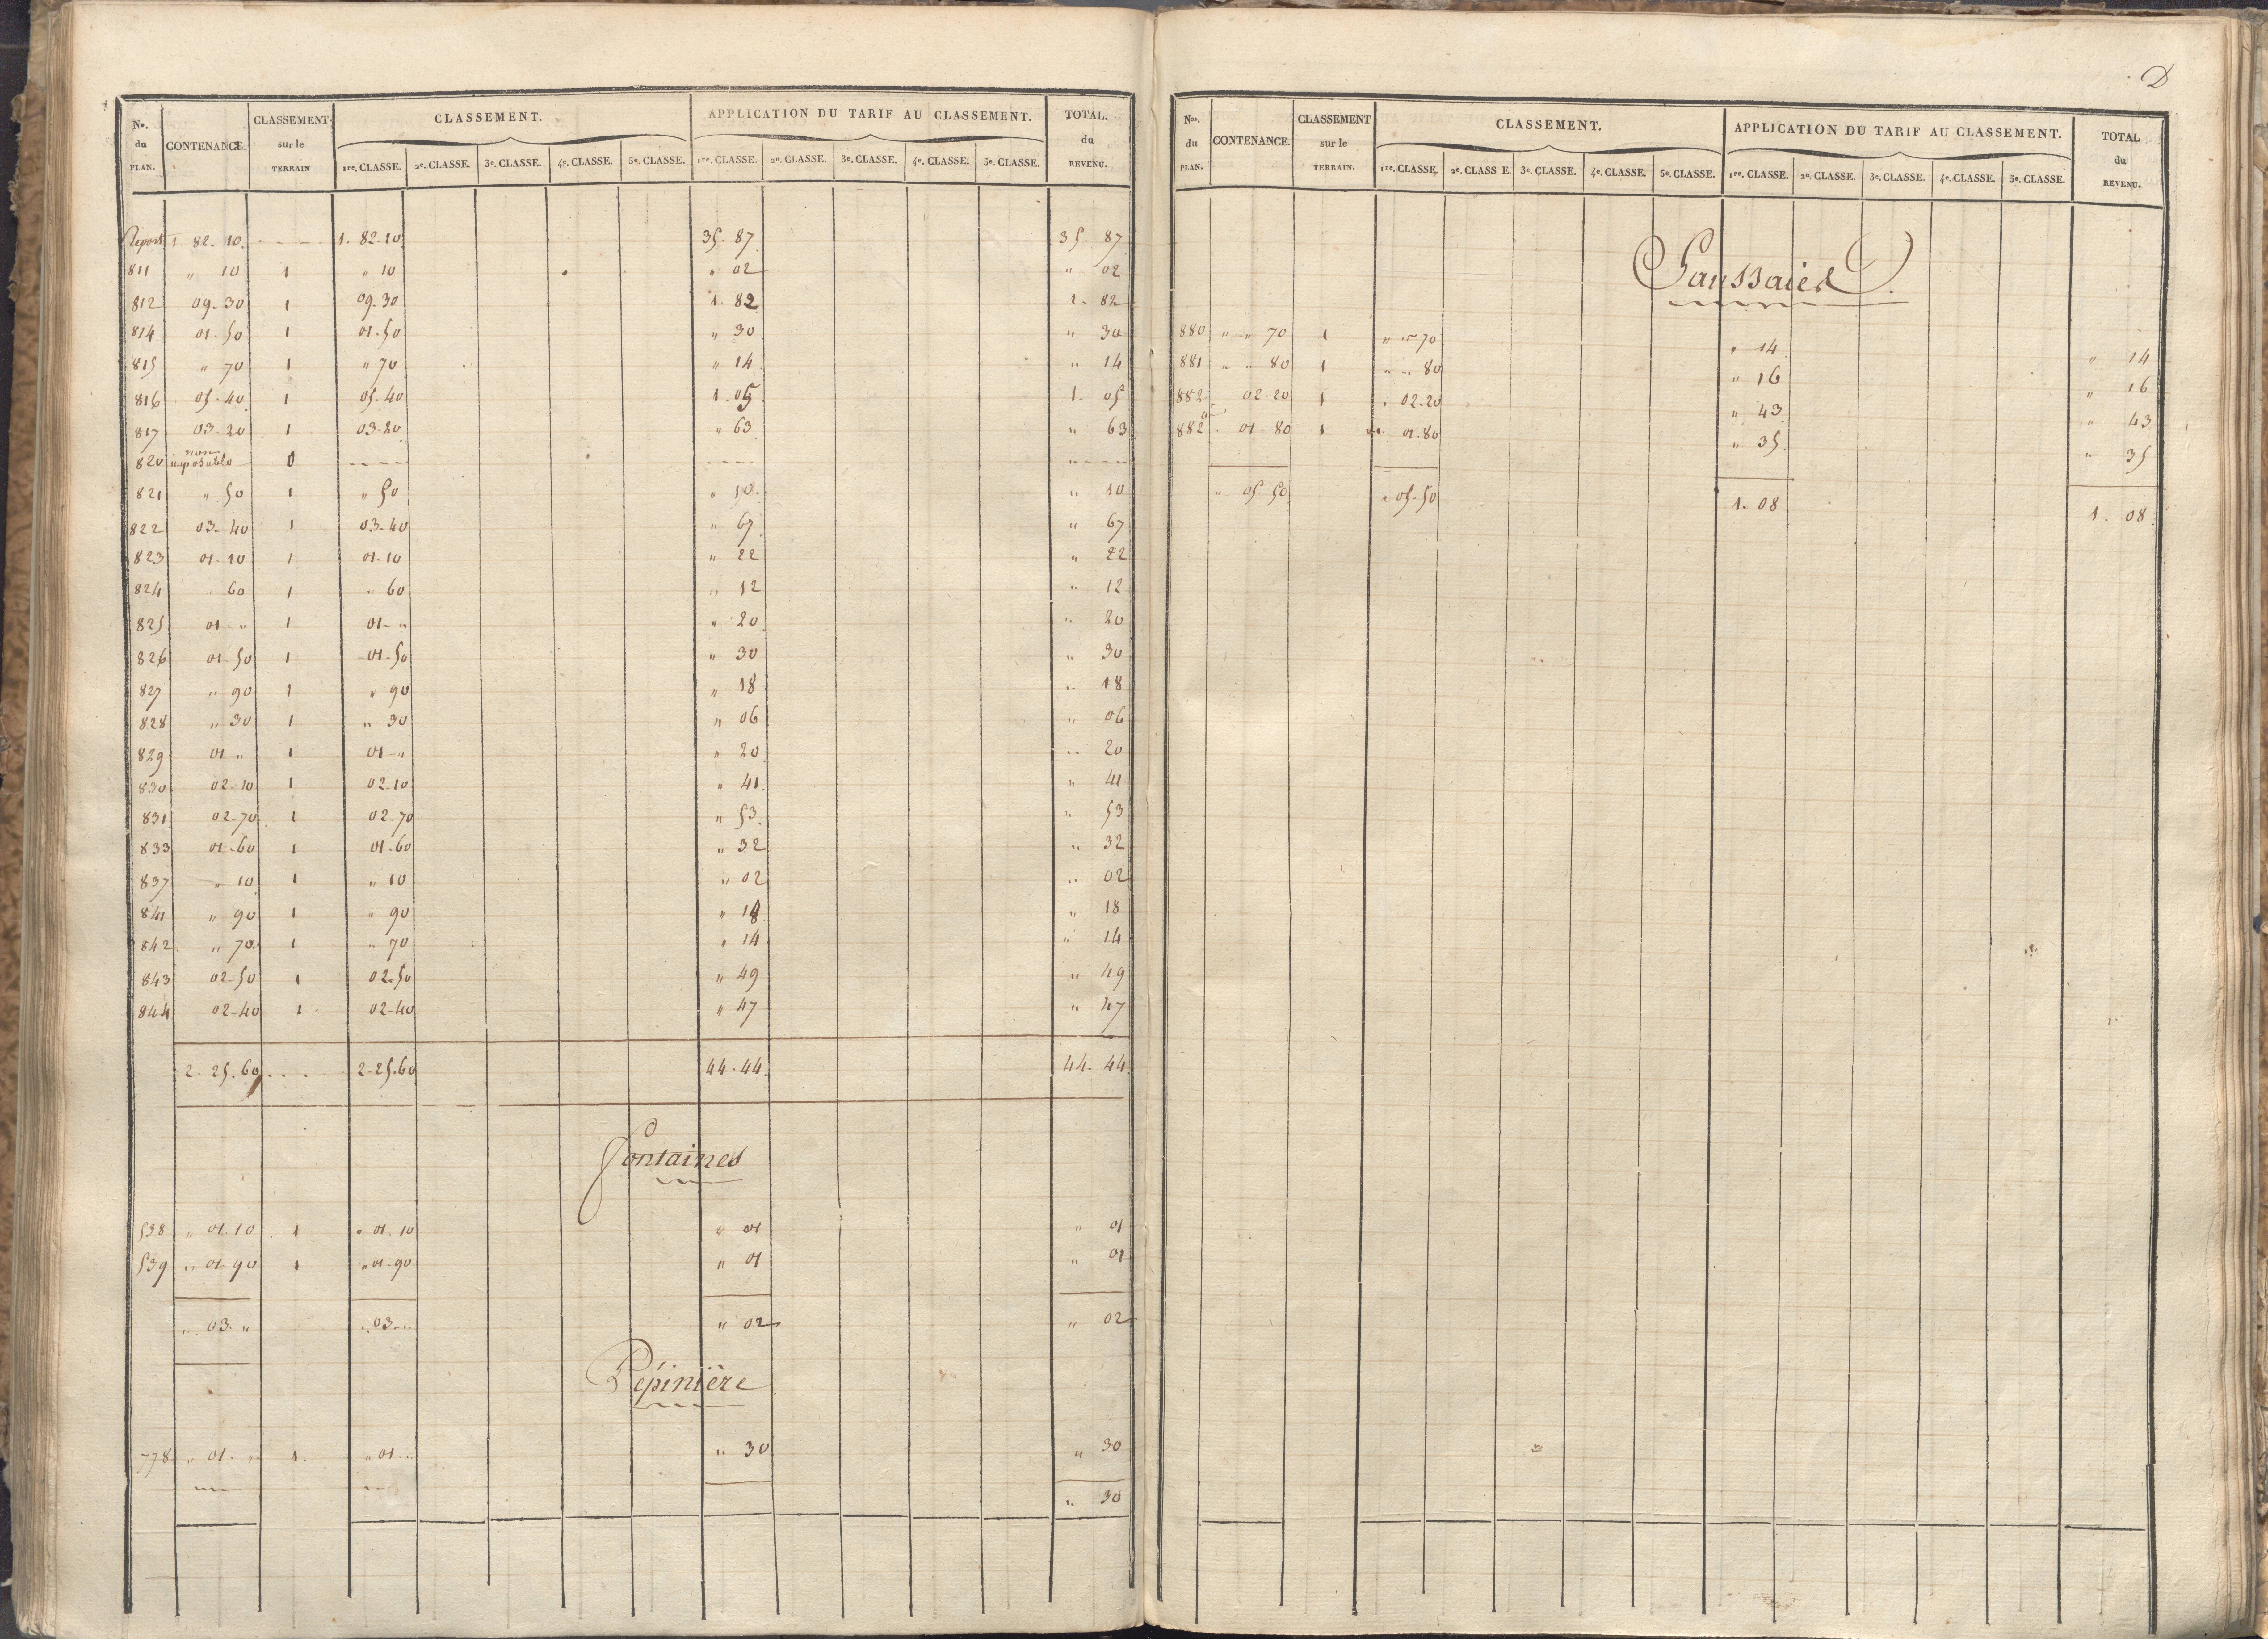 D
No. du PLAN. CONTENANCE. CLASSEMENT sur le TERRAIN CLASSEMENT. 1re. CLASSE. 2e. CLASSE. 3e. CLASSE. 4e. CLASSE. 5e. CLASSE. APPLICATION DU TARIF AU CLASSEMENT. 1re. CLASSE. 2e. CLASSE. 3e. CLASSE. 4e. CLASSE. 5e. CLASSE. TOTAL. du REVENU.
Report 1. 82. 10. 1. 82-10 35. 87 35. 87
811 " 10 1 " 10 " 02 " 02
812 09-30 1 09-30 1. 82 1. 82
814 01-50 1 01-50 " 30 " 30
815 " 70 1 " 70 " 14 " 14
816 05-40 1 05-40 1. 05 1. 05
817 03-20 1 03-20 " 63 " 63
820 non imposable 0 ---- ---- ----
821 " 50 1 " 50 " 10 " 10
822 03-40 1 03-40 " 67 " 67
823 01-10 1 01-10 " 22 " 22
824 " 60 1 " 60 " 12 " 12
825 01 " 1 01-" " 20 " 20
826 01-50 1 01-50 " 30 " 30
827 " 90 1 " 90 " 18 " 18
828 " 30 1 " 30 " 06 " 06
829 01 " 1 01-" " 20 " 20
830 02-10 1 02.10 " 41 " 41
831 02-70 1 02-70 " 53 " 53
833 01-60 1 01-60 " 32 " 32
837 " 10 1 " 10 " 02 " 02
841 " 90 1 " 90 " 18 " 18
842 " 70 1 " 70 " 14 " 14
843 02-50 1 02-50 " 49 " 49
844 02-40 1 02-40 " 47 " 47
2. 25. 60 2-25.60 44. 44. 44. 44
Fontaines
538 " 01.10 1 " 01.10 " 01 " 01
539 " 01-90 1 " 01-90 " 01 " 01
" 03. " " 03-" " 02 " 02
Pépinière
778 " 01. " 1 " 01-" " 30 " 30
" 30
Nos. du PLAN. CONTENANCE. CLASSEMENT sur le TERRAIN. CLASSEMENT. 1re. CLASSE. 2e. CLASS E. 3e. CLASSE. 4e. CLASSE. 5e. CLASSE. APPLICATION DU TARIF AU CLASSEMENT. 1re. CLASSE. 2e. CLASSE. 3e. CLASSE. 4e. CLASSE. 5e. CLASSE. TOTAL du REVENU.
Saussaies
880 " " 70 1 " " 70 " 14 " 14
881 " " 80 1 " " 80 " 16 " 16
882 02-20 1 " 02-20 " 43 " 43
882 a 01 80 1 " 01-80 " 35 " 35
" 05-50 " 05-50 1. 08 1. 08